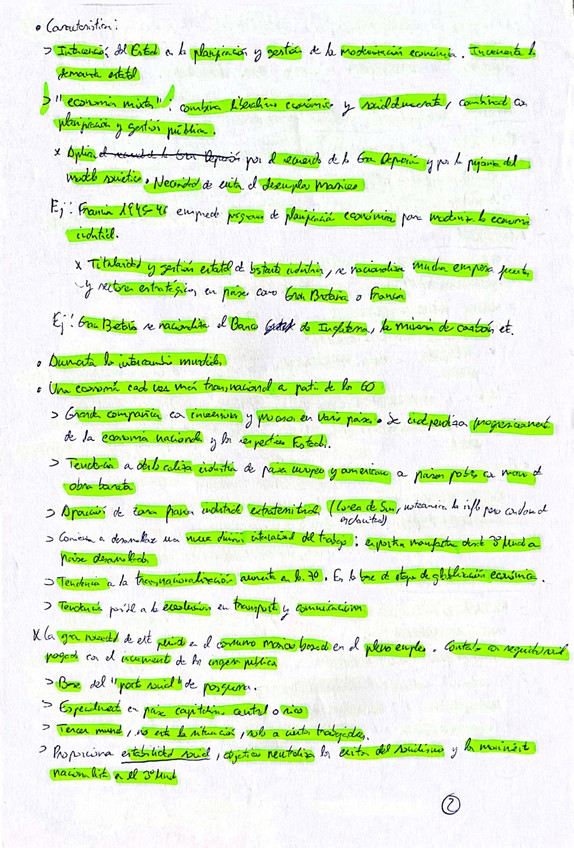 • Características:
> Intervención del Estado en la planificación y gestión de la modernización económica. Incrementa la
demanda estatal
> "economía mixta": combina liberalismo económico y socialdemócrata, combinad con
planificación y gestión pública.
x Aplica el recuerdo de la Gran Depresión por el recuerdo de la Gran Depresión y por la pujanza del
modelo soviético. Necesidad de evitar el desempleo masivo
Ej: Francia 1945-46 emprende programa de planificación económica para modernizar la economía
industrial.
x Titularidad y gestión estatal de bastante industria, se nacionaliza muchas empresas
y sectores estratégicos en países como Gran Bretaña o Francia
Ej: Gran Bretaña se nacionaliza el Banco de Inglaterra, la minería de carbón etc.
• Aumenta los intercambios mundiales
• Una economía cada vez más transnacional a partir de los 60
> Grandes compañías con inversiones y procesos en varios países. Se independizan progresivamente
de la economía nacional y los respectivos Estados.
> Tendencia a deslocalizar industria de países europeos y americanos a países pobres con mano de
obra barata
> Aparición de zonas francas industriales extraterritoriales (Corea de Sur,
> Comienza a desarrollarse una nueva división internacional del trabajo: exportan manufacturas desde 3º Mundo a
países desarrollados
> Tendencia a la transnacionalización aumenta en los 70. Es la base de etapa de globalización económica.
> Tendencia posible a la evolución en transporte y comunicaciones
x La gran novedad de este periodo es el consumo masivo basado en el pleno empleo. Contaba con seguridad social
pagada con el incremento de los ingresos públicos
> Base del "pacto social" de posguerra.
> Especialmente en países capitalistas central o rico
> Tercer mundo, no está la situación, solo a ciertos trabajadores.
> Proporciona estabilidad social, objetivo neutralizar los éxitos del socialismo y los movimientos
nacionalistas en el 3º Mund
2